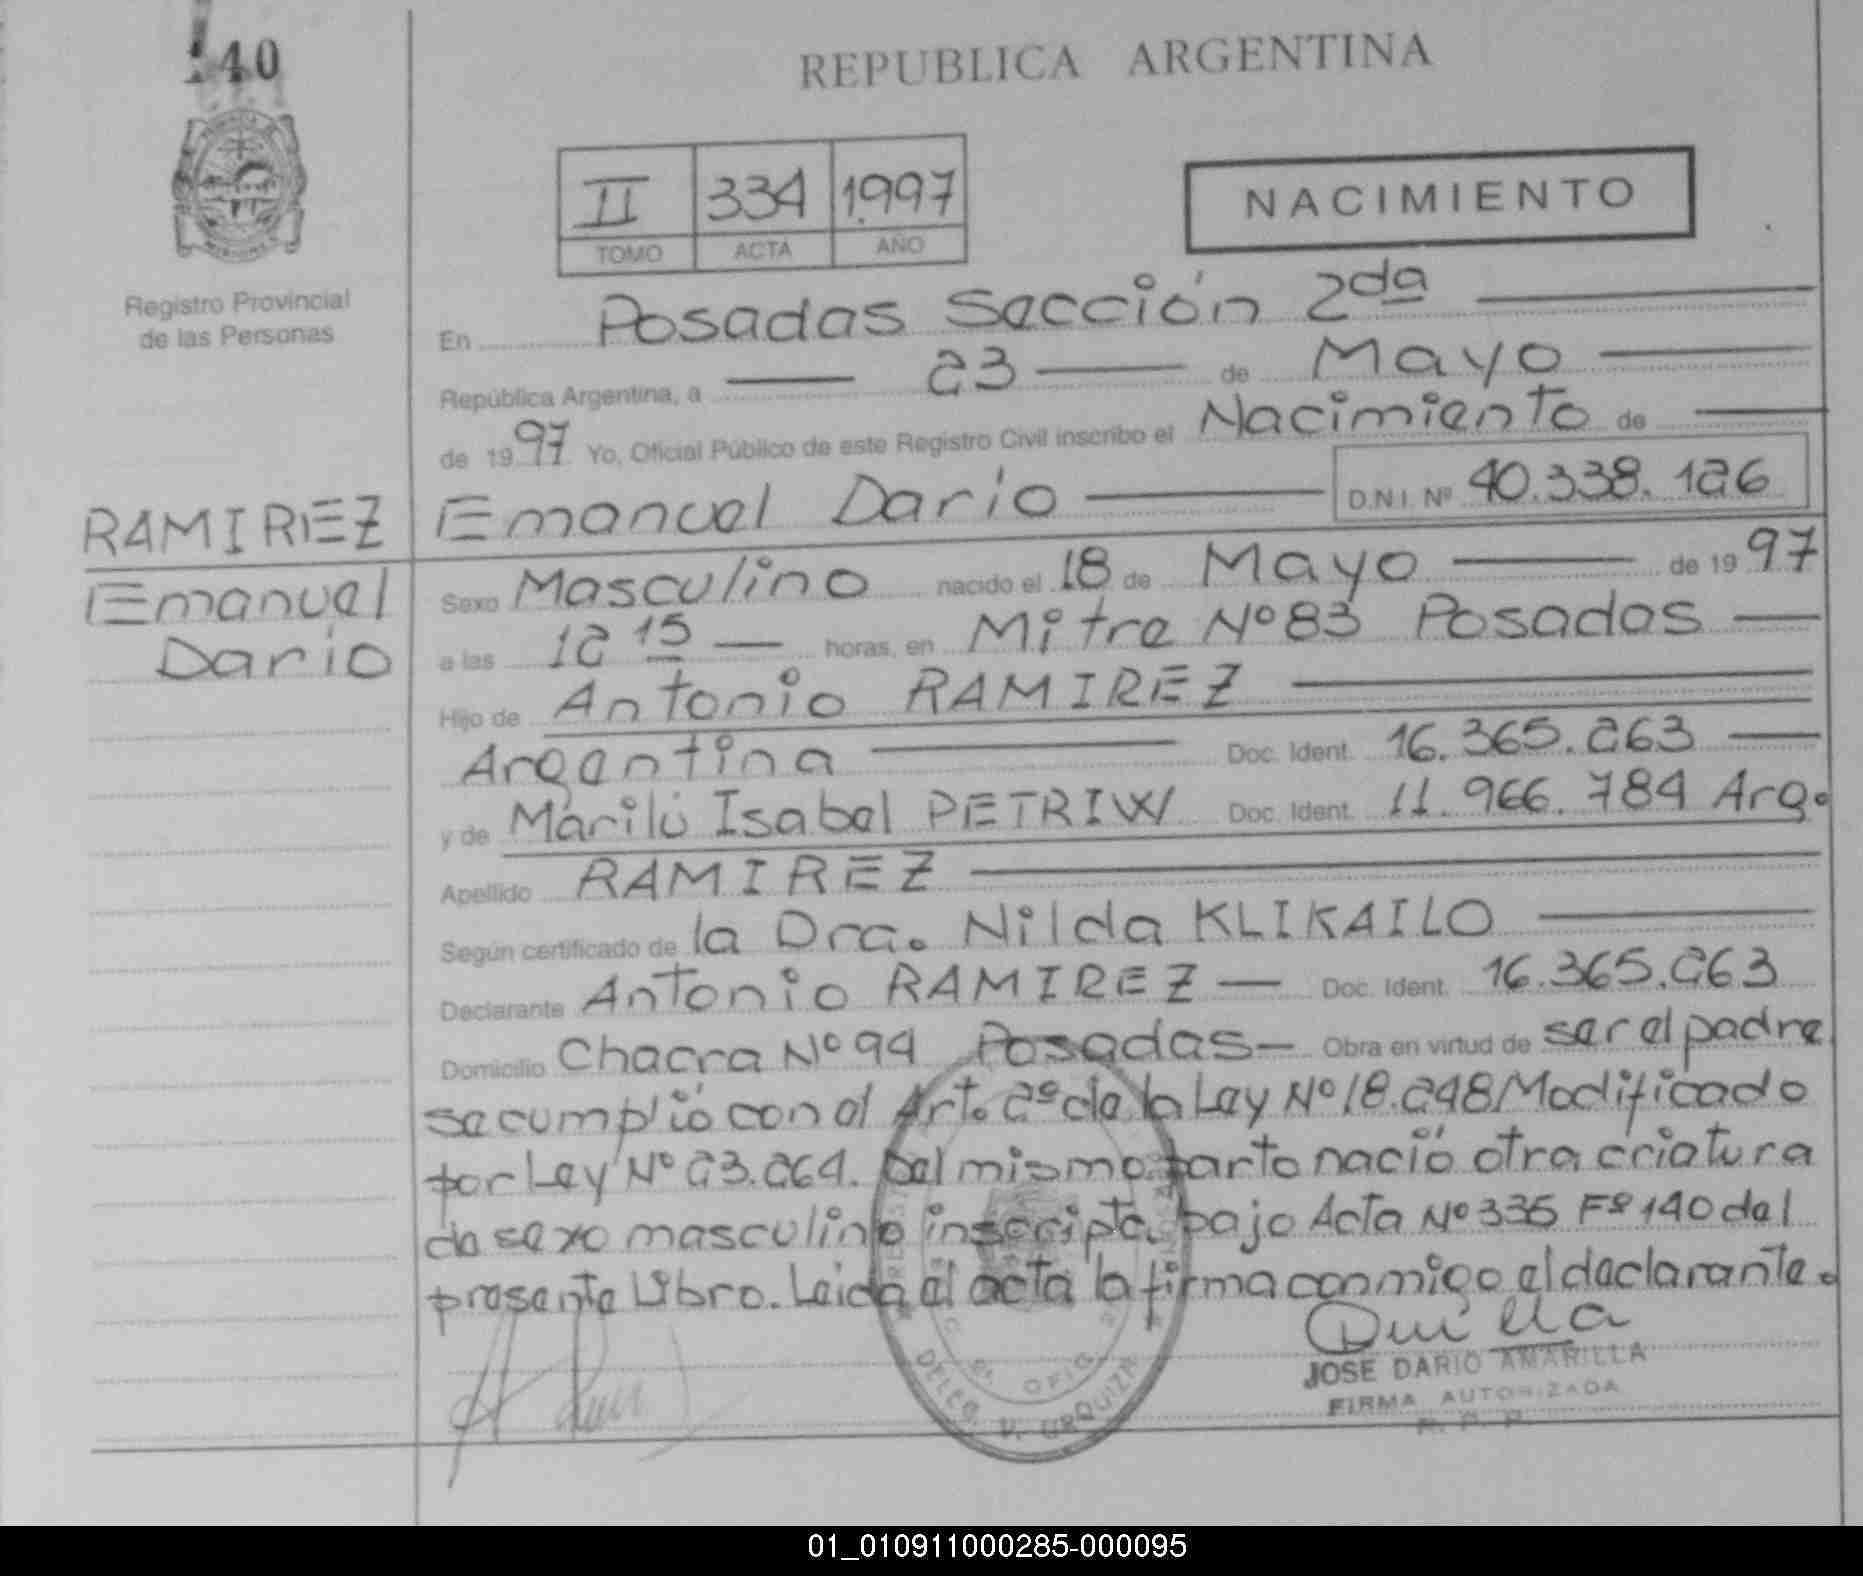 140
REPUBLICA ARGENTINA
II 334 1.997
TOMO ACTA AÑO
NACIMIENTO
Registro Provincial
de las Personas
En Posadas Sección 2da
República Argentina, a 23 de Mayo
de 1997 Yo, Oficial Público de este Registro Civil inscribo el Nacimiento de
RAMIREZ
Emanuel
Dario
Emanuel Dario D.N.I. Nº 40.338.126
Sexo Masculino nacido el 18 de Mayo de 1997
a las 12 15 horas, en Mitre Nº 83 Posadas
Hijo de Antonio RAMIREZ
Argentina Doc. Ident. 16.365.263
y de Marilú Isabel PETRIW Doc. Ident. 11.966.784 Arg.
Apellido RAMIREZ
Según certificado de la Dra. Nilda KLIKAILO
Declarante Antonio RAMIREZ Doc. Ident. 16.365.263
Domicilio Chacra Nº 94 Posadas Obra en virtud de ser el padre
se cumplió con el Art. 2º de la Ley Nº 18.248 Modificado
por Ley Nº 23.264. Del mismo parto nació otra criatura
de sexo masculino inscripta bajo Acta Nº 335 Fº 140 del
presente Libro. Leida el acta la firma conmigo el declarante.
JOSE DARIO AMARILLA
FIRMA AUTORIZADA
R. P. P.
DELEG. V. URQUIZA
01_010911000285-000095